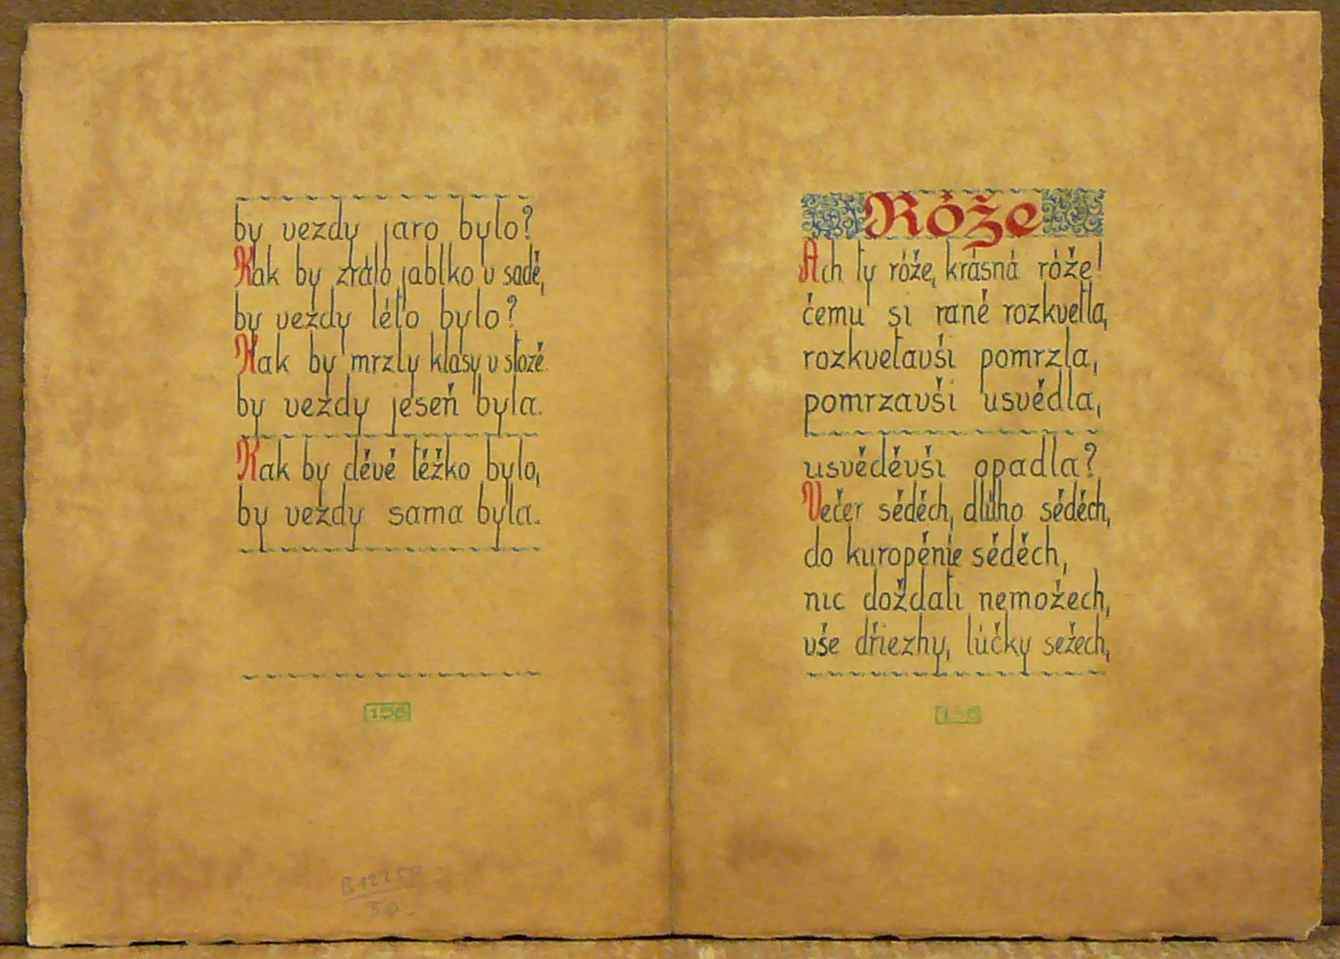 by vezdy jaro bylo?
Kak by zrálo jablko v sadě,
by vezdy léto bylo?
Kak by mrzly klasy v stozě.
by vezdy jeseň byla.
Kak by děvě těžko bylo,
by vezdy sama byla.
156
Róže
Ach ty róže, krásná róže!
čemu si raně rozkvetla,
rozkvetavši pomrzla,
pomrzavši usvědla,
usvěděvši opadla?
Večer séděch, dlúho séděch,
do kuropěnie séděch,
nic doždati nemožech,
vše dřiezhy, lúčky sežech,